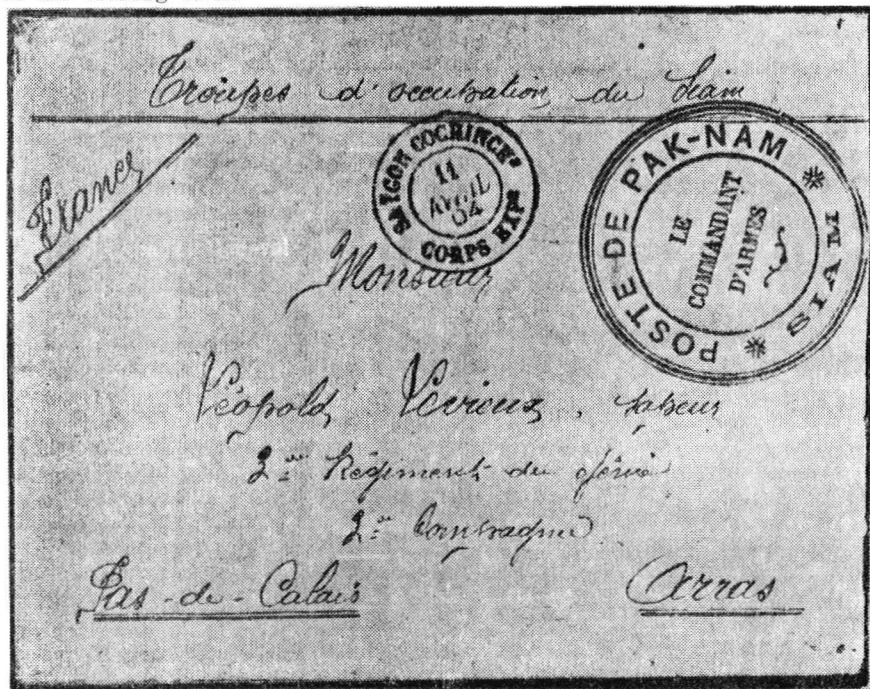 Troupes d'occupation du Siam
France
SAIGON COCHINCHNE
11
AVRIL
04
CORPS EXPRE
POSTE DE PAK-NAM * SIAM *
LE
COMMANDANT
D'ARMES
Monsieur
Léopold , sapeur
Régiment du génie
Compagnie
Pas-de-Calais
Arras